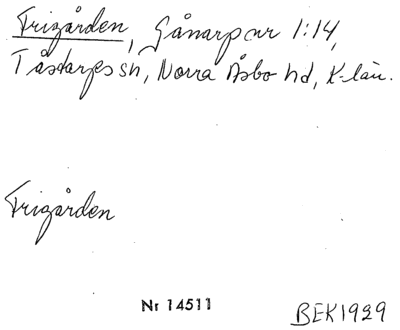 Frigården, Gånarp nr 1:14,
Tåstarps sn, Norra Åsbo hd, K-län.
Frigården
Nr 14511
BEK1929